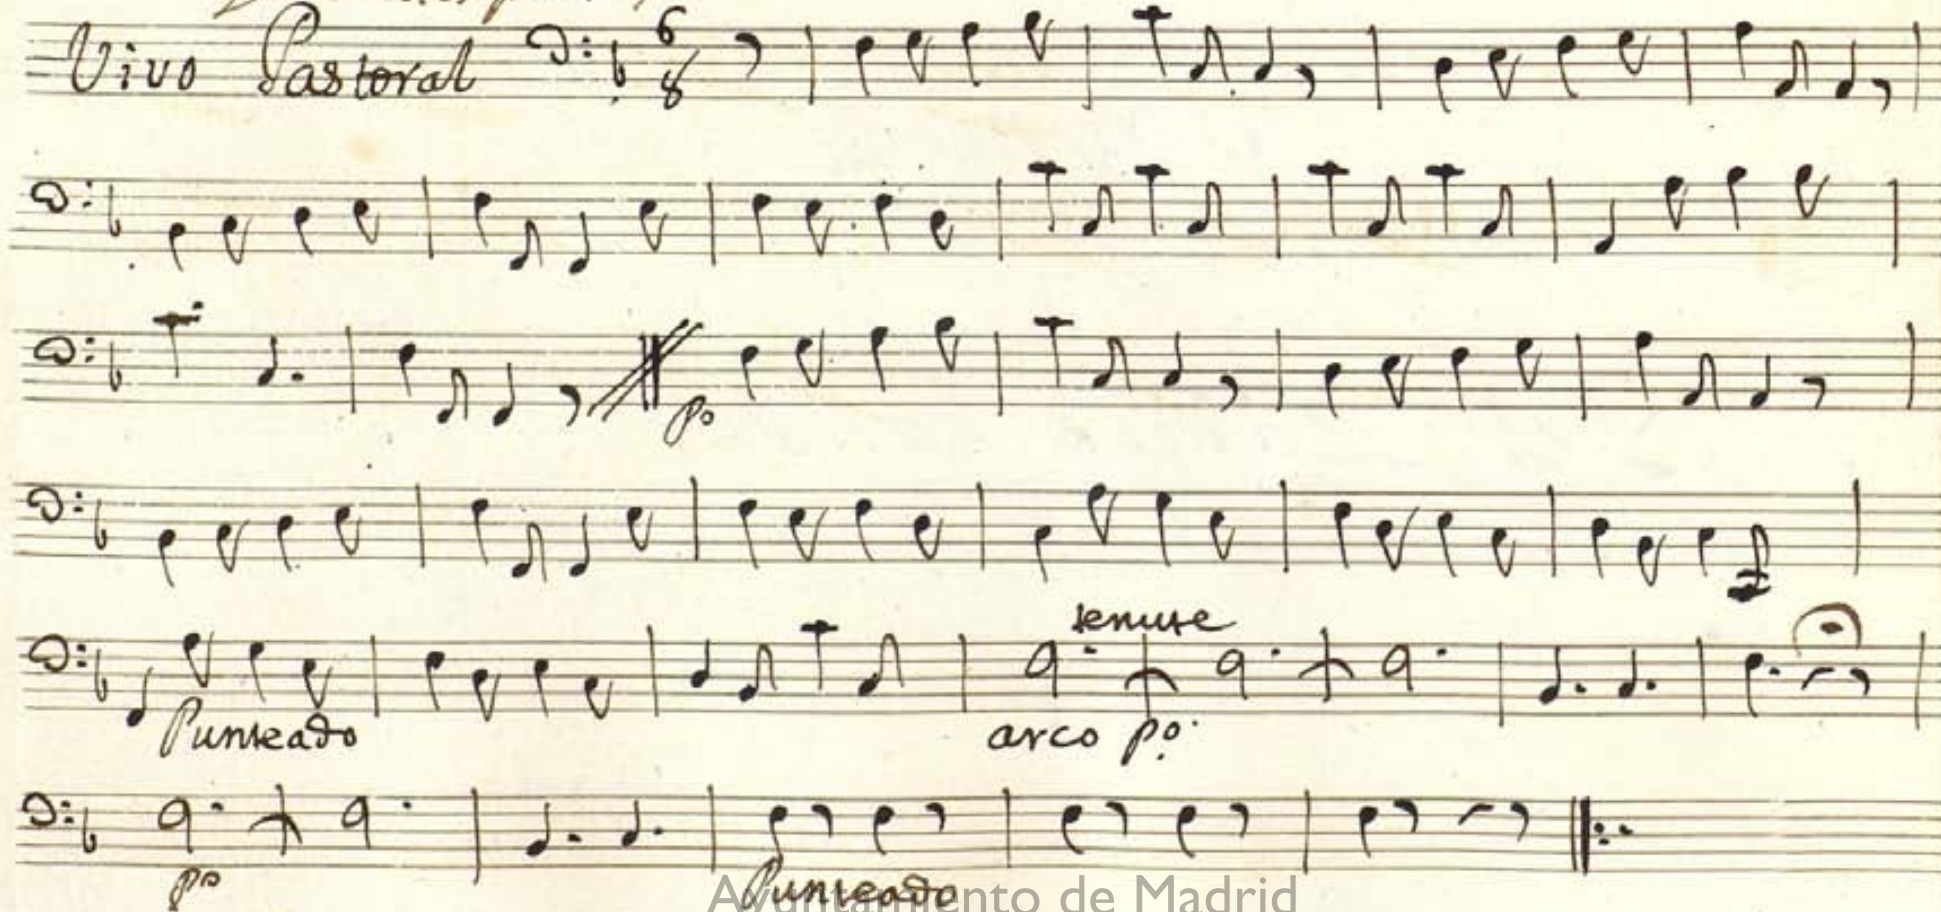 Vivo Pastoral 6 8
po
tenute
Punteado
arco po.
po
Punteado
Ayuntamiento de Madrid